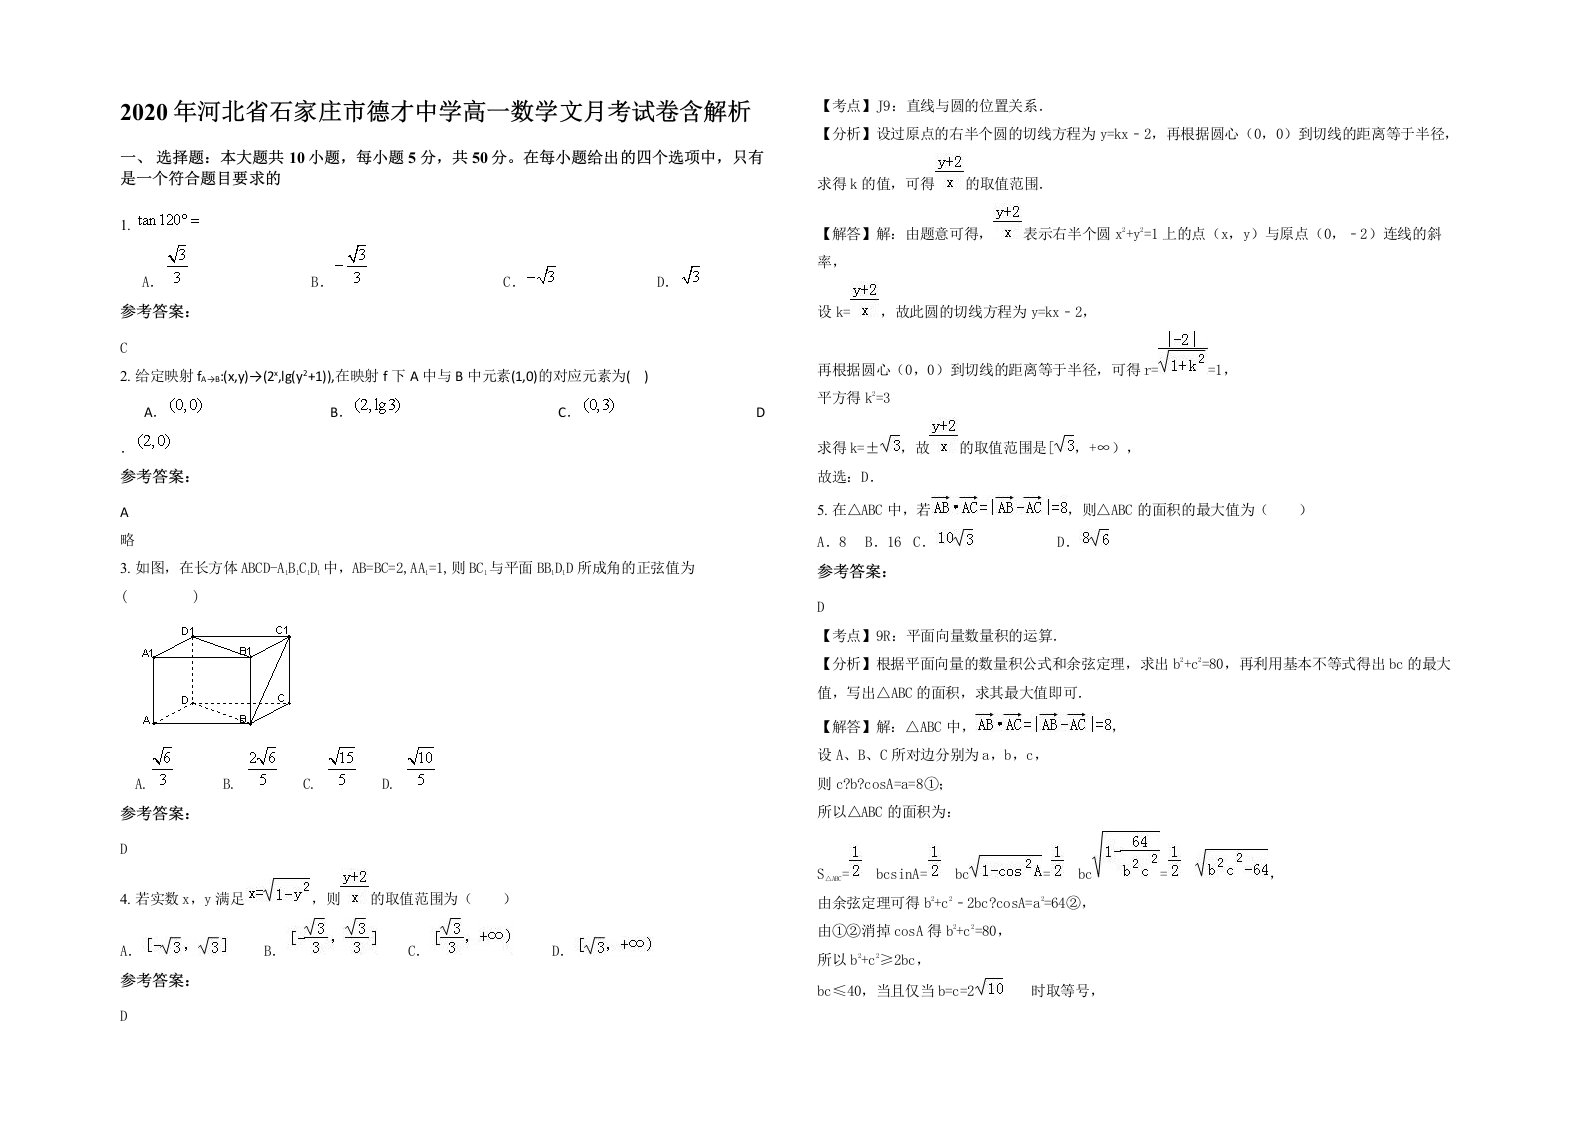 2020 年河北省石家庄市德才中学高一数学文月考试卷含解析
一、 选择题：本大题共 10 小题，每小题 5 分，共 50 分。在每小题给出的四个选项中，只有
是一个符合题目要求的
1. tan120°=
A. √3/3 B. -√3/3 C. -√3 D. √3
参考答案:
C
2. 给定映射 fA→B:(x,y)→(2ˣ,lg(y²+1)),在映射 f 下 A 中与 B 中元素(1,0)的对应元素为( )
A. (0,0) B. (2,lg3) C. (0,3) D
. (2,0)
参考答案:
A
略
3. 如图，在长方体 ABCD-A₁B₁C₁D₁ 中，AB=BC=2, AA₁=1, 则 BC₁ 与平面 BB₁D₁D 所成角的正弦值为
( )
D1 C1
A1 B1
D C
A B
A. √6/3 B. 2√6/5 C. √15/5 D. √10/5
参考答案:
D
4. 若实数 x，y 满足 x=√(1-y²)，则 (y+2)/x 的取值范围为（ ）
A. [-√3，√3] B. [-√3/3，√3/3] C. [√3/3，+∞) D. [√3，+∞)
参考答案:
D
【考点】J9：直线与圆的位置关系．
【分析】设过原点的右半个圆的切线方程为 y=kx﹣2，再根据圆心（0，0）到切线的距离等于半径，
求得 k 的值，可得 (y+2)/x 的取值范围．
【解答】解：由题意可得，(y+2)/x 表示右半个圆 x²+y²=1 上的点（x，y）与原点（0，﹣2）连线的斜
率，
设 k= (y+2)/x ，故此圆的切线方程为 y=kx﹣2，
再根据圆心（0，0）到切线的距离等于半径，可得 r=|-2|/√(1+k²)=1，
平方得 k²=3
求得 k=±√3，故 (y+2)/x 的取值范围是[√3，+∞），
故选：D．
5. 在△ABC 中，若AB•AC=|AB-AC|=8，则△ABC 的面积的最大值为（ ）
A．8 B．16 C．10√3 D．8√6
参考答案:
D
【考点】9R：平面向量数量积的运算．
【分析】根据平面向量的数量积公式和余弦定理，求出 b²+c²=80，再利用基本不等式得出 bc 的最大
值，写出△ABC 的面积，求其最大值即可．
【解答】解：△ABC 中，AB•AC=|AB-AC|=8，
设 A、B、C 所对边分别为 a，b，c，
则 c?b?cosA=a=8①；
所以△ABC 的面积为：
S△ABC=1/2 bcsinA=1/2 bc√(1-cos²A)=1/2 bc√(1-64/(b²c²))=1/2 √(b²c²-64)，
由余弦定理可得 b²+c²﹣2bc?cosA=a²=64②，
由①②消掉 cosA 得 b²+c²=80，
所以 b²+c²≥2bc，
bc≤40，当且仅当 b=c=2√10 时取等号，